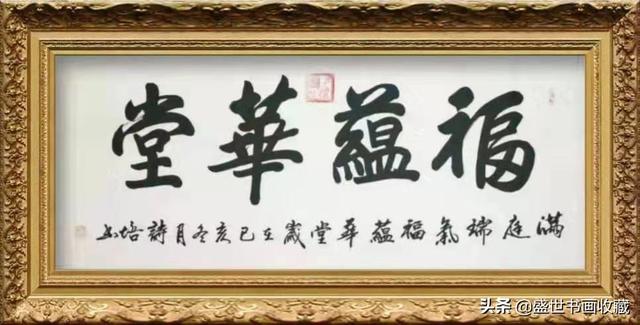 福蘊華堂
滿庭瑞氣福蘊華堂歲在己亥冬月詩培书
头条 @盛世书画收藏